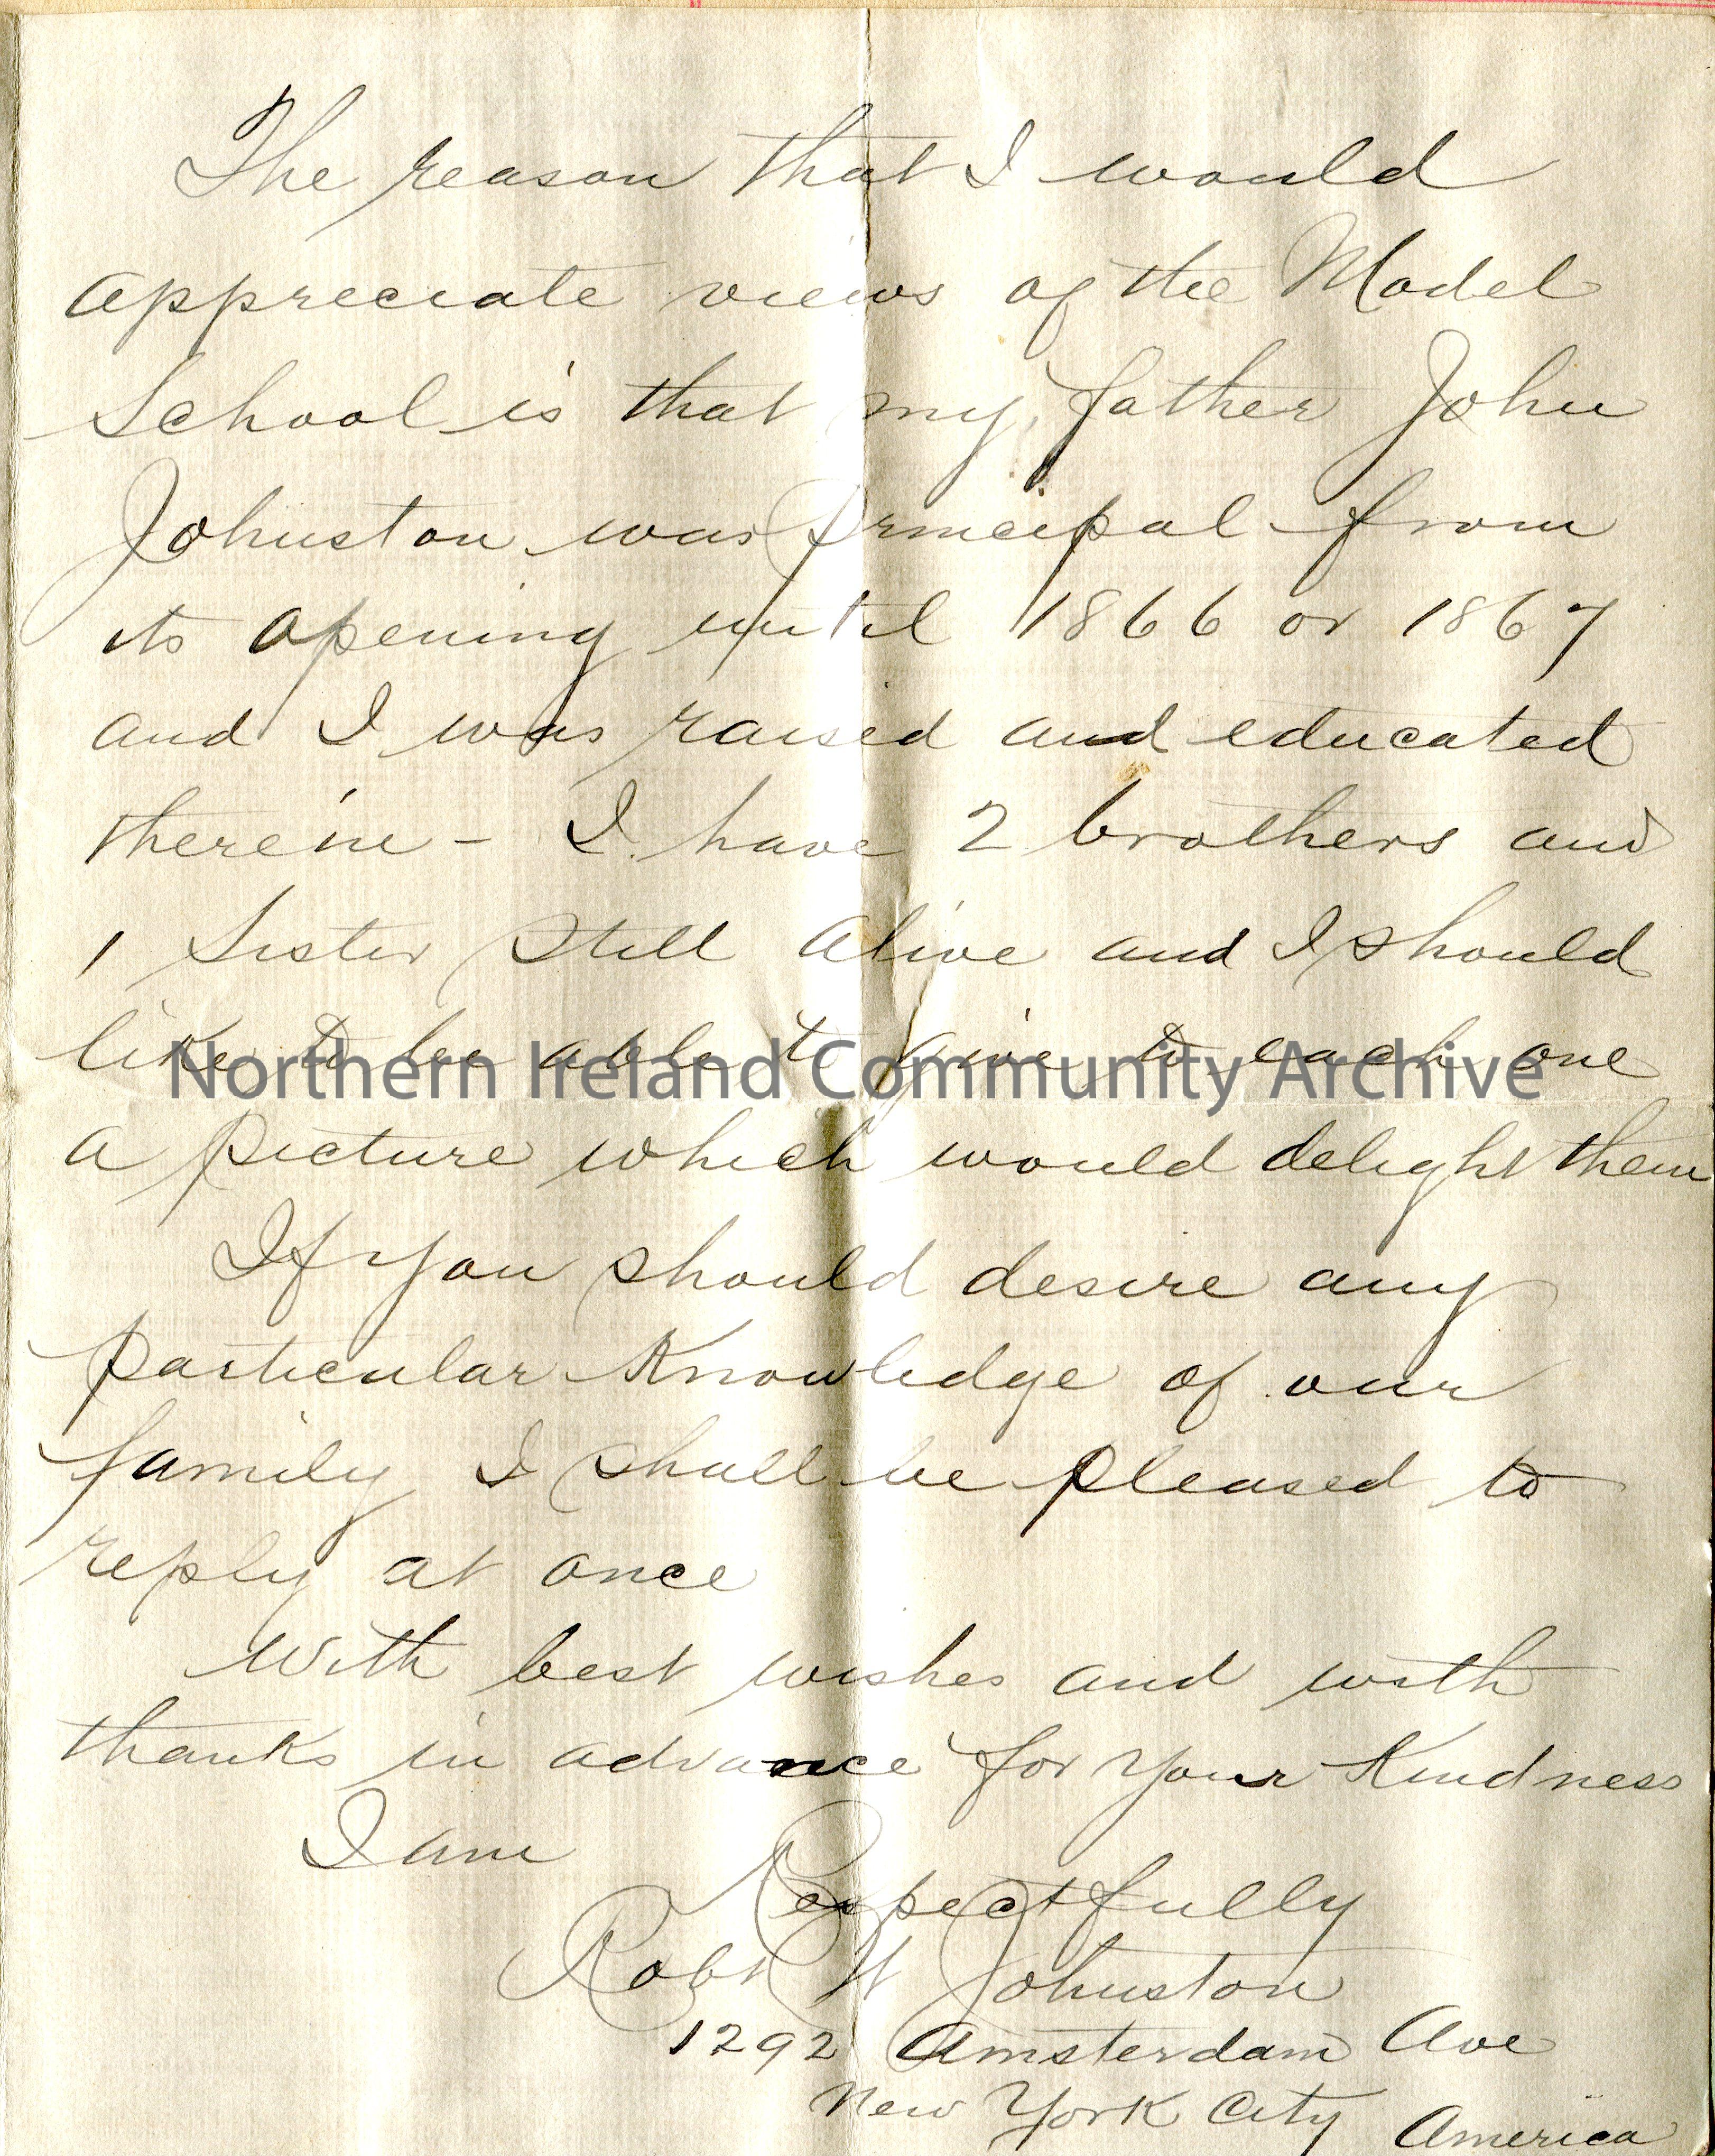 The reason that I would
appreciate views of the Model
School is that my father John
Johnston was Principal from
its opening until 1866 or 1867
and I was raised and educated
therein - I have 2 brothers and
1 Sister still alive and I should
like to be able to give to each one
Northern Ireland Community Archive
a picture which would delight them
If you should desire any
particular Knowledge of our
family I shall be pleased to
reply at once
With best wishes and with
thanks in advance for your Kindness
I am
Respectfully
Robt W Johnston
1292 Amsterdam Ave
New York City America